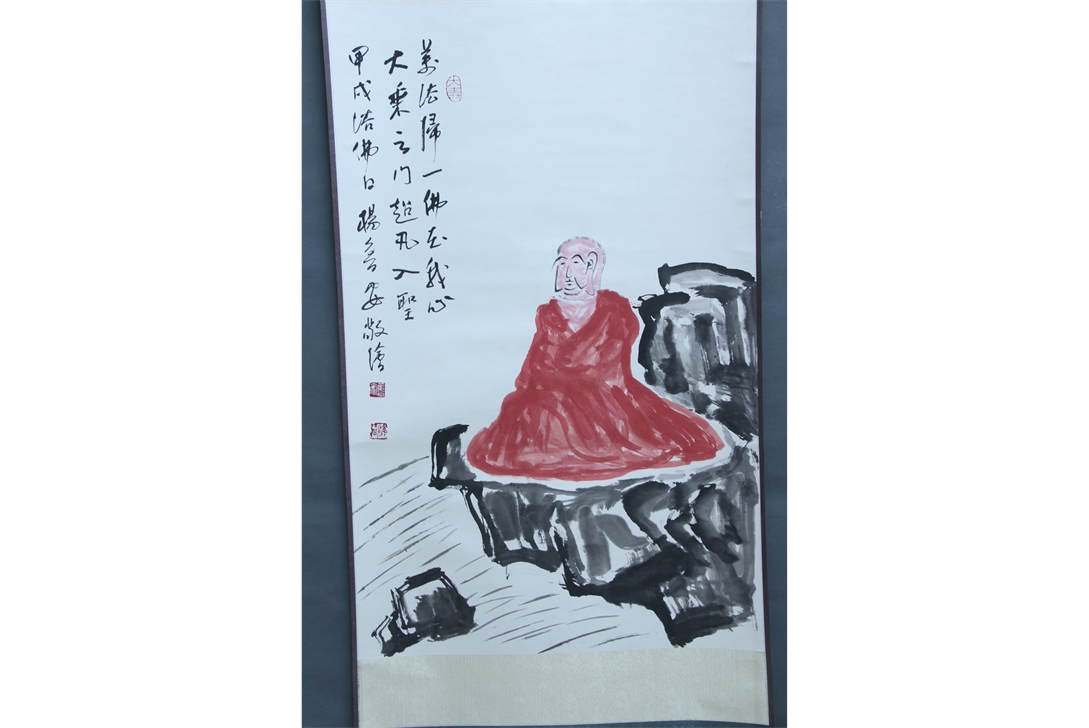 萬法歸一佛在我心
大乘之門超凡入聖
甲戌浴佛日楊魯安敬繪